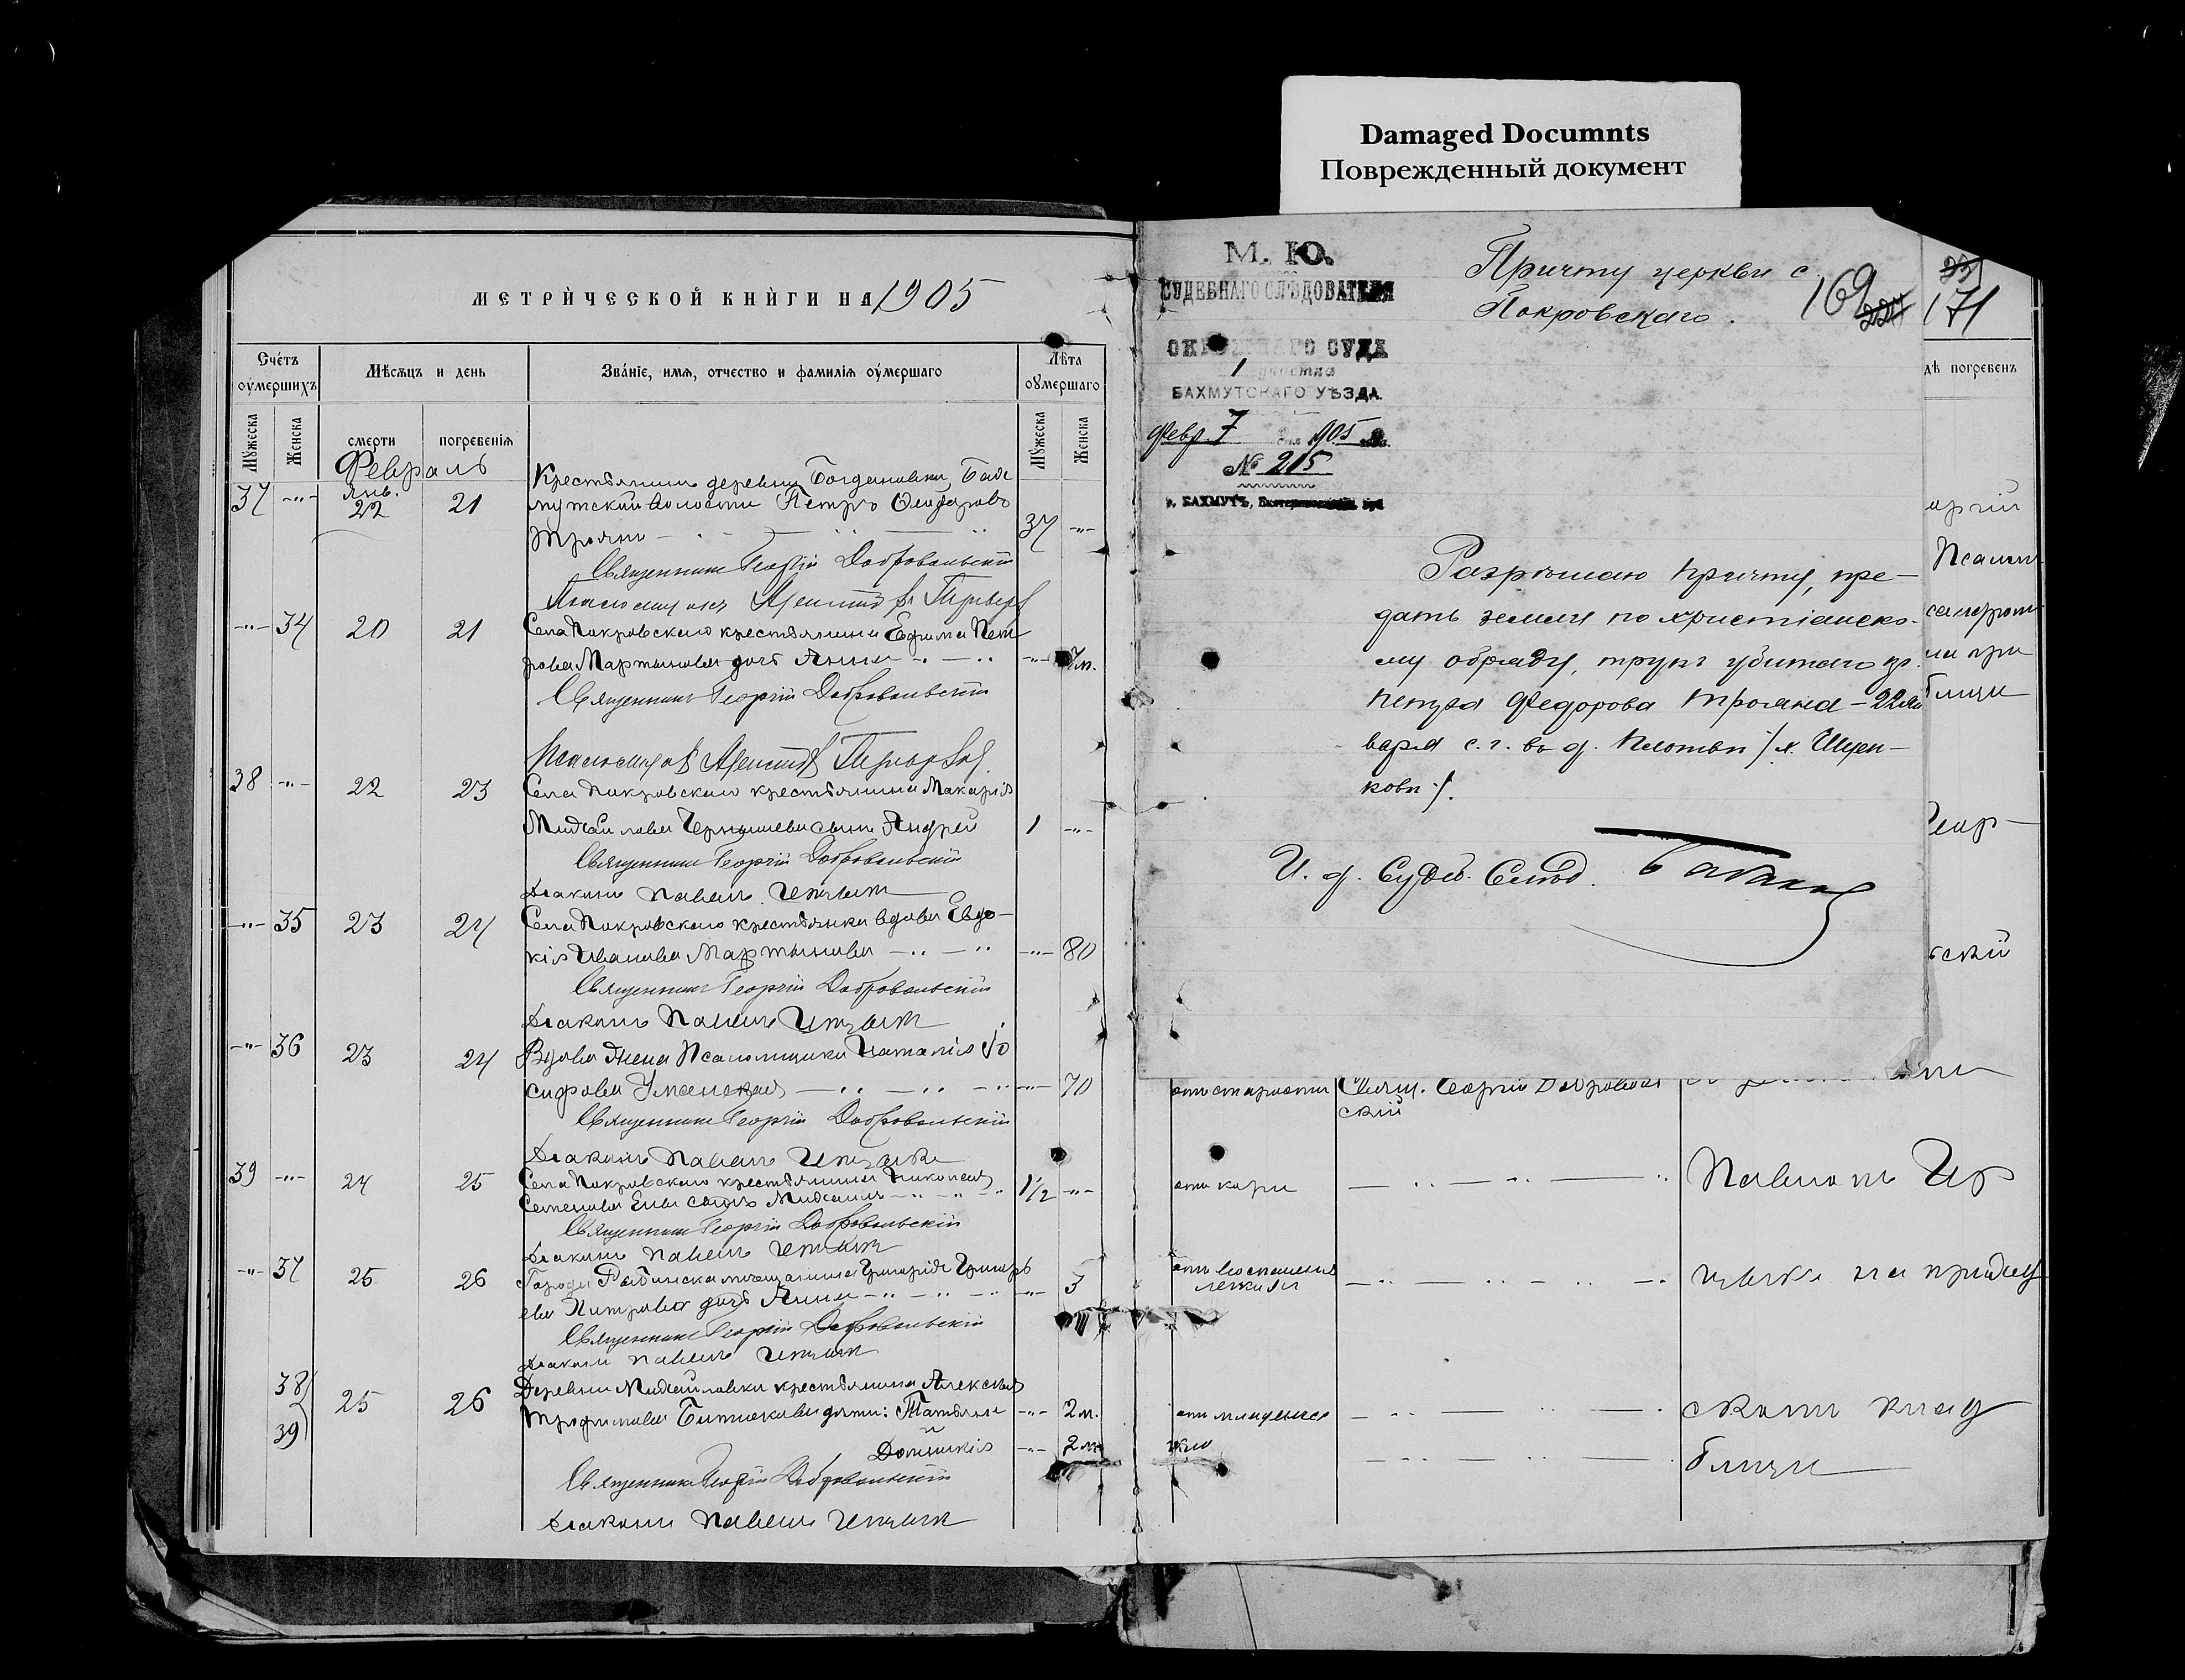 Damaged Documnts
Поврежденный документ
МЕТРИЧЕСКОЙ КНИГИ НА 1905
Счетъ оумершихъ
Мѣсяцъ и день
Званіе, имя, отчество и фамилія оумершаго
Лѣта оумершаго
Мужеска
Женска
смерти
погребенія
Мужеска
Женска
Февраль
37 -"- Янв. 22 21 Крестьянинъ деревни Богдановки, Бах
мутской волости Петръ Ѳеодоровъ
Троянъ 37 -"-
Священникъ Георгій Добровольскій
-"- 34 20 21 Села Покровскаго крестьянина Ефима Пет
рова Мартынова дочь Анна -"- 7м.
Священникъ Георгій Добровольскій
38 -"- 22 23 Села Покровскаго крестьянина Макарія
Михайлова Чернышева сынъ Андрей 1 -"-
Священникъ Георгій Добровольскій
Діаконъ Павелъ
-"- 35 23 24 Села Покровскаго крестьянка вдова Евдо-
кія Иванова Мартынова -"- 80
Священникъ Георгій Добровольскій
Діаконъ Павелъ
-"- 36 23 24 Вдова жена Псаломщика Наталія Іо
сифова Уманская -"- 70
Священникъ Георгій Добровольскій
Діаконъ Павелъ
39 -"- 24 25 Села Покровскаго крестьянина Николая
Семенова сынъ Михаилъ 1½ -"-
Священникъ Георгій Добровольскій
Діаконъ Павелъ
-"- 37 25 26 Города Рыбинска мѣщанина Григорія Григорь
ева Петрова дочь Анна -"- 3
Священникъ Георгій Добровольскій
Діаконъ Павелъ
38 25 26 Деревни Михайловки крестьянина Алексія
Трофимова дѣти: Татьяна -"- 2м.
39 Домникія -"- 2м.
Священникъ Георгій Добровольскій
Діаконъ Павелъ
М. Ю.
СУДЕБНАГО СЛѢДОВАТЕЛЯ
ОКРУЖНАГО СУДА
1 участка
БАХМУТСКАГО УѢЗДА.
Февр. 7 дня 1905
№ 205
г. БАХМУТЪ,
Причту церкви с.
Покровскаго.
169
171
дѣ погребенъ
Разрѣшаю причту, пре-
дать землѣ по христіанско-
му обряду, трупъ убитаго кр.
Петра Федорова Трояна - 22 ян
варя с.г. въ д.
И. д. Суд. Слѣд.
оргій
Псалом
ли при
бищи
Геор-
ьскій
отъ старости Свящ. Георгій Добровол
скій
отъ кори Павломъ
отъ воспаленія
легкихъ
отъ младенчес
каго скомъ клад
бищи